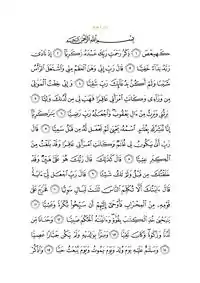 بِسْمِ ٱللَّهِ ٱلرَّحْمَٰنِ ٱلرَّحِيمِ
كٓهيعٓصٓ ١ ذِكْرُ رَحْمَتِ رَبِّكَ عَبْدَهُۥ زَكَرِيَّآ ٢ إِذْ نَادَىٰ
رَبَّهُۥ نِدَآءً خَفِيًّا ٣ قَالَ رَبِّ إِنِّى وَهَنَ ٱلْعَظْمُ مِنِّى وَٱشْتَعَلَ ٱلرَّأْسُ
شَيْبًا وَلَمْ أَكُنۢ بِدُعَآئِكَ رَبِّ شَقِيًّا ٤ وَإِنِّى خِفْتُ ٱلْمَوَٰلِىَ
مِن وَرَآءِى وَكَانَتِ ٱمْرَأَتِى عَاقِرًا فَهَبْ لِى مِن لَّدُنكَ وَلِيًّا ٥
يَرِثُنِى وَيَرِثُ مِنْ ءَالِ يَعْقُوبَ وَٱجْعَلْهُ رَبِّ رَضِيًّا ٦ يَٰزَكَرِيَّآ
إِنَّا نُبَشِّرُكَ بِغُلَٰمٍ ٱسْمُهُۥ يَحْيَىٰ لَمْ نَجْعَل لَّهُۥ مِن قَبْلُ سَمِيًّا ٧ قَالَ
رَبِّ أَنَّىٰ يَكُونُ لِى غُلَٰمٌ وَكَانَتِ ٱمْرَأَتِى عَاقِرًا وَقَدْ بَلَغْتُ مِنَ
ٱلْكِبَرِ عِتِيًّا ٨ قَالَ كَذَٰلِكَ قَالَ رَبُّكَ هُوَ عَلَىَّ هَيِّنٌ وَقَدْ
خَلَقْتُكَ مِن قَبْلُ وَلَمْ تَكُ شَيْـًٔا ٩ قَالَ رَبِّ ٱجْعَل لِّىٓ ءَايَةً
قَالَ ءَايَتُكَ أَلَّا تُكَلِّمَ ٱلنَّاسَ ثَلَٰثَ لَيَالٍ سَوِيًّا ١٠ فَخَرَجَ عَلَىٰ
قَوْمِهِۦ مِنَ ٱلْمِحْرَابِ فَأَوْحَىٰٓ إِلَيْهِمْ أَن سَبِّحُوا۟ بُكْرَةً وَعَشِيًّا ١١
يَٰيَحْيَىٰ خُذِ ٱلْكِتَٰبَ بِقُوَّةٍ وَءَاتَيْنَٰهُ ٱلْحُكْمَ صَبِيًّا ١٢ وَحَنَانًا مِّن
لَّدُنَّا وَزَكَوٰةً وَكَانَ تَقِيًّا ١٣ وَبَرًّۢا بِوَٰلِدَيْهِ وَلَمْ يَكُن جَبَّارًا عَصِيًّا ١٤
وَسَلَٰمٌ عَلَيْهِ يَوْمَ وُلِدَ وَيَوْمَ يَمُوتُ وَيَوْمَ يُبْعَثُ حَيًّا ١٥ وَٱذْكُرْ